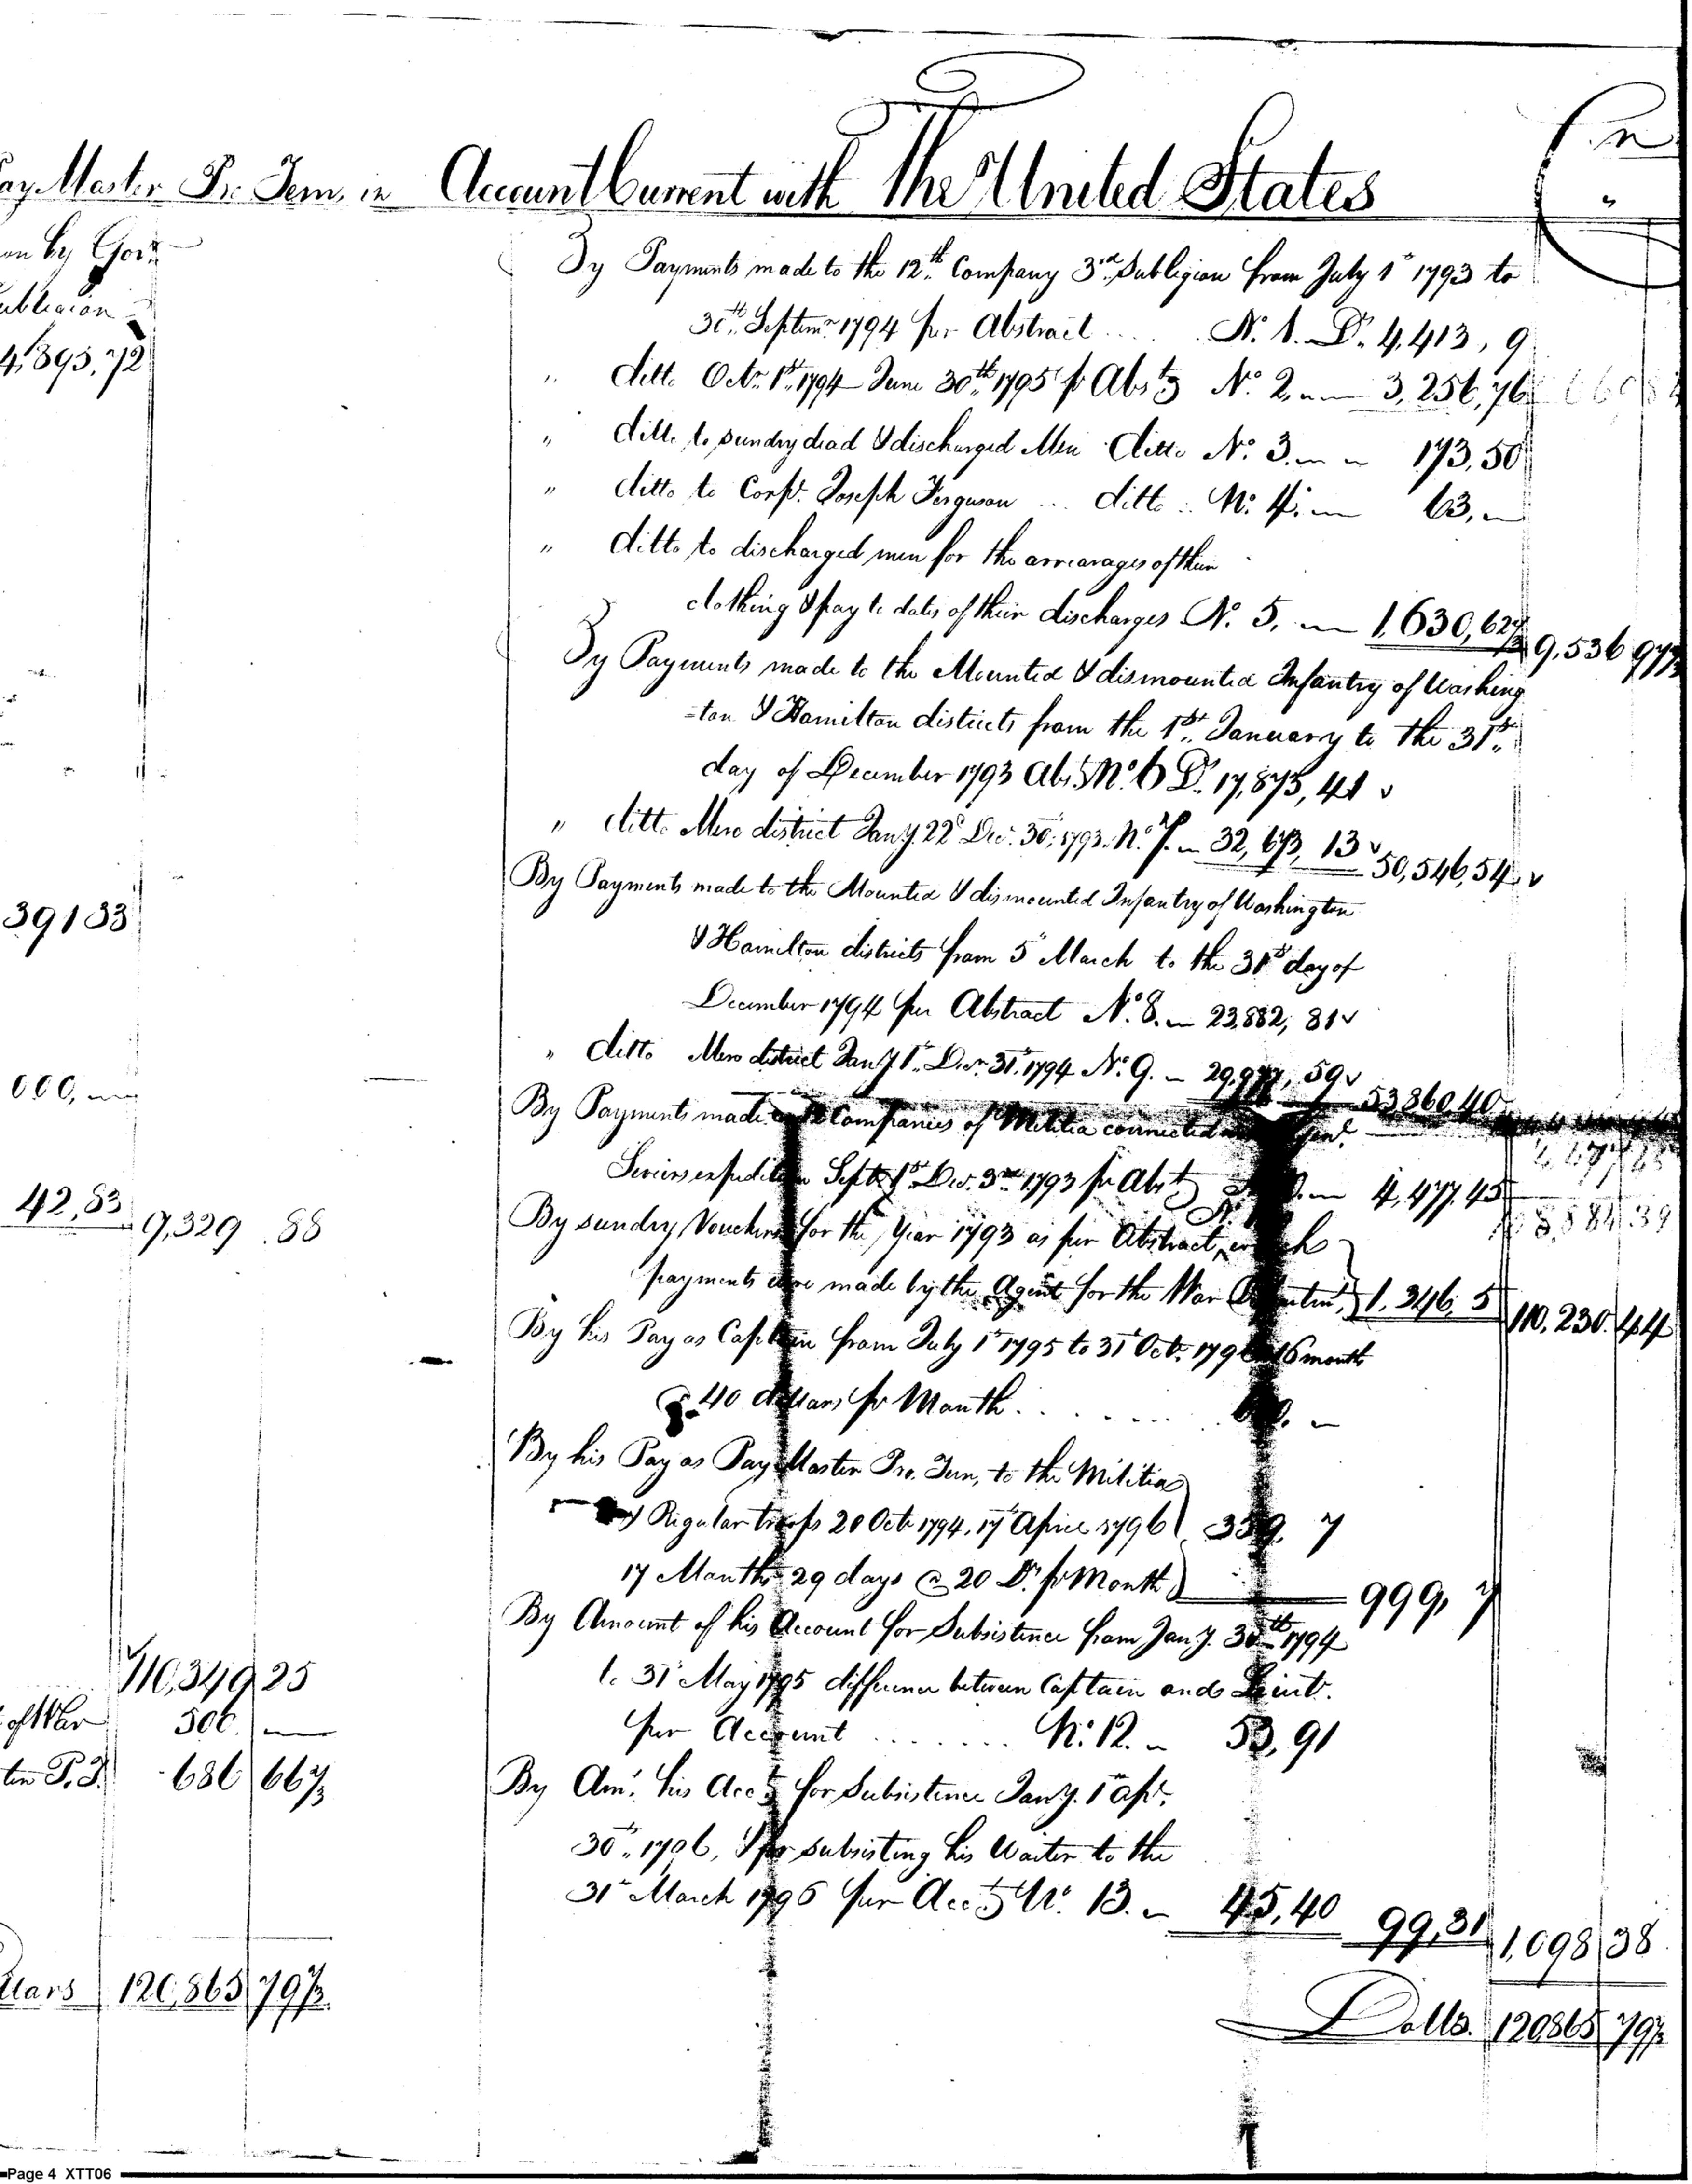 Pay Master Pr. Tem, in Account Current with The United States Cr
on by Govr.
ublegion
4,893,72
39133
000,
42,83 9,329 . 88
110,349 25
of War 500. —
ter P. T. 686 66⅔
llars 120,865 79⅔
By Payments made to the 12th. Company 3rd. Sublegion from July 1st 1793 to
30th. Septemr. 1794 per Abstract .... N. 1. Drs. 4,413, 9
" ditto Octr. 1st. 1794 June 30th. 1795 pr Abst No. 2, 3,256,76
" ditto, to sundry dead & discharged Men Ditto No. 3. 173,50
" ditto to Corpl. Joseph Ferguson ... ditto .. No. 4. 63, —
" ditto, to discharged men for the arrearages of their
clothing & pay to dates of their discharges No. 5, 1,630,62⅔ 9,536 97⅔
By Payments made to the Mounted & dismounted Infantry of Washing
-ton & Hamilton districts from the 1st. January to the 31st.
day of December 1793 Abst No. 6 Drs. 17,873,41
" ditto Mero district Jany. 22d Decr. 30, 1793. No. 7. 32,673,13 50,546,54
By Payments made to the Mounted & dismounted Infantry of Washington
& Hamilton districts from 5th March to the 31st day of
December 1794 per Abstract No. 8. 23,882, 81
" ditto Mero district Jany. 1st. Decr. 31st. 1794 No. 9. 29,977, 59 53860.40
By Payments made Companies of Militia connected Genl.
Seviers expedition Septr. 1st. Decr. 3rd 1793 per Abst 4,477.45
By sundry Vouchers for the Year 1793 as per Abstract, No. which
payments were made by the Agent for the War 1,346, 5 110,230.44
By his Pay as Captain from July 1st 1795 to 31st Octr. 179 16 months
@ 40 dollars pr Month.
By his Pay as Pay Master Pro. Tem, to the Militia
Regular troops 20 Octr 1794, 17th April 1796 359, 7
17 Months 29 days @ 20 Drs. pr Month 999, 7
By Amount of his Account for Subsistence from Jany. 30th 1794
to 31st May 1795 difference between Captain and Lieut.
per Account ....... No. 12. 53,91
By Amt. his Acct for Subsistence Jany. 1st Apr.
30th. 1796, & for subsisting his Waiter to the
31st March 1796 per Acct No. 13. 45,40 99,31 1,098 38
Dolls. 120865 79⅔
Page 4 XTT06